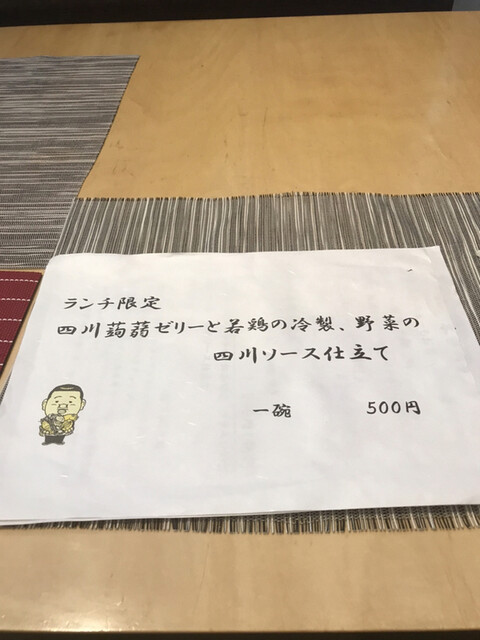 ランチ限定
四川蒟蒻ゼリーと若鶏の冷製、野菜の
四川ソース仕立て
一碗 500円